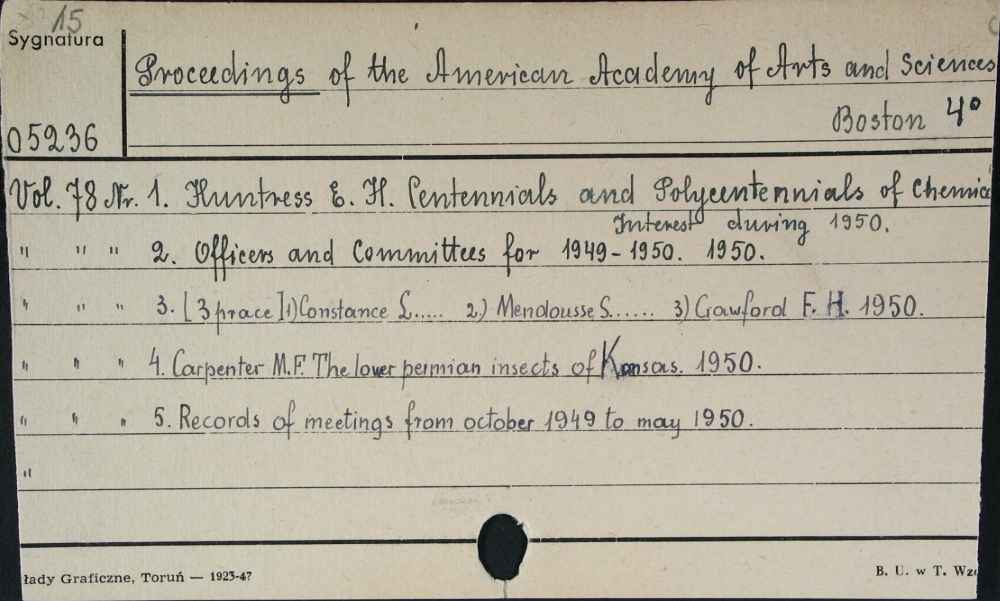 15
Sygnatura
Proceedings of the American Academy of Arts and Sciences
Boston 4°
05236
Vol. 78 Nr. 1. Huntress E. H. Centennials and Polycentennials of Chemica
Interest during 1950.
" " " 2. Officers and Committees for 1949-1950. 1950.
" " " 3. [3 prace] 1) Constance L..... 2.) Mendousse S...... 3) Crawford F. H. 1950.
" " " 4. Carpenter M.F. The lower permian insects of Kansas. 1950.
" " " 5. Records of meetings from october 1949 to may 1950.
"
łady Graficzne, Toruń — 1923-47
B. U. w T. Wzó